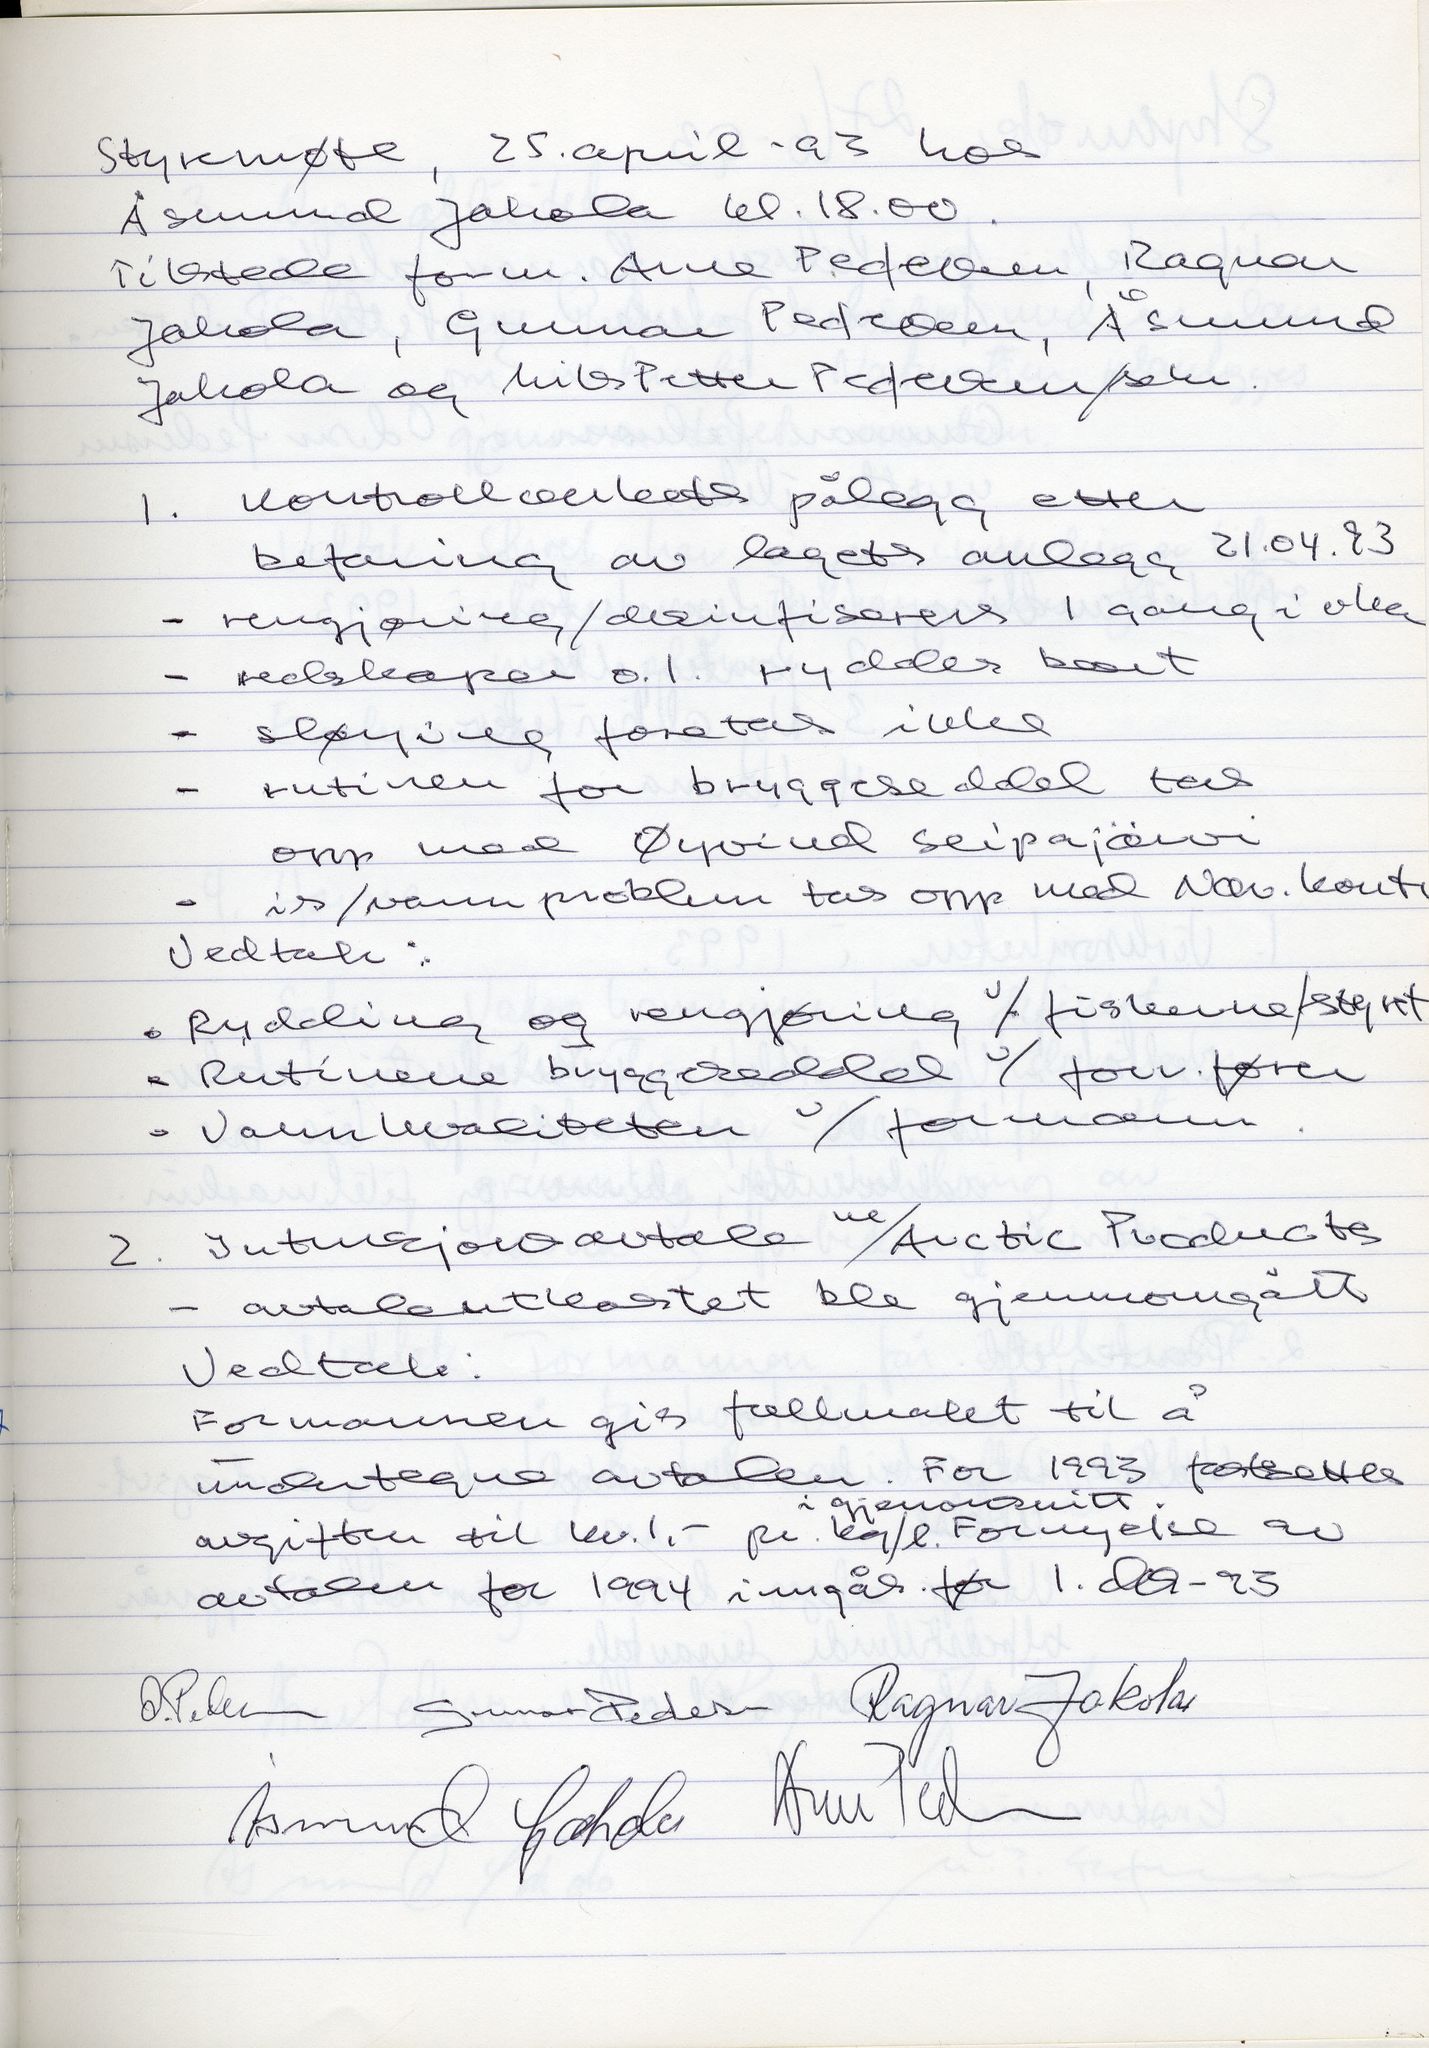 Styremøte, 25. april -93 hos
Åsmund Jakola kl. 18.00.
Tilstede form. Arne Pedersen, Ragnar
Jakola, Gunnar Pedersen, Åsmund
Jakola og Nils Petter Pedersen/sekr.
1. Kontrollverkets pålegg etter
befaring av lagets anlegg 21.04.93
- rengjøring/desinfiseres 1 gang i uka
- redskaper o.l. ryddes bort
- sløying foretas ikke
- rutinen for bryggeseddel tas
opp med Øyvind Seipajärvi
- is/vannproblem tas opp med Næv.kont
Vedtak:
- Rydding og rengjøring v/ fiskerne/styret
- Rutinene bryggeseddel v/ forr.fører
- Vannkvaliteten v/ formann.
2. Intensjonsavtale m/Arctic Products
- avtaleutkastet ble gjennomgått
Vedtak:
Formannen gis fullmakt til å
undertegne avtalen. For 1993 fastsettes
i gjennomsnitt.
avgiften til kr. 1,- pr. kg/l. Fornyelse av
avtalen for 1994 inngås før 1. -93
Gunnar Pedersen Ragnar Jakola
Åsmund Jakola Arne Ped